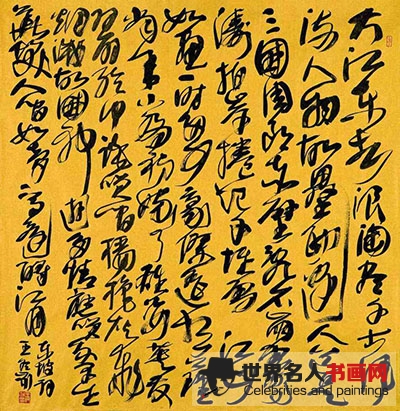 大江东去浪淘尽千古风
流人物故垒西边人道是
三国周郎赤壁乱石崩云惊
涛拍岸捲起千堆雪江山
如画一时多少豪杰遥想公瑾
当年小乔初嫁了雄姿英发
羽扇纶巾谈笑间樯橹灰飞
烟灭故国神游多情应笑我早生
华发人间如梦一尊还酹江月
东坡词
世界名人书画网
Celebrities and paintings